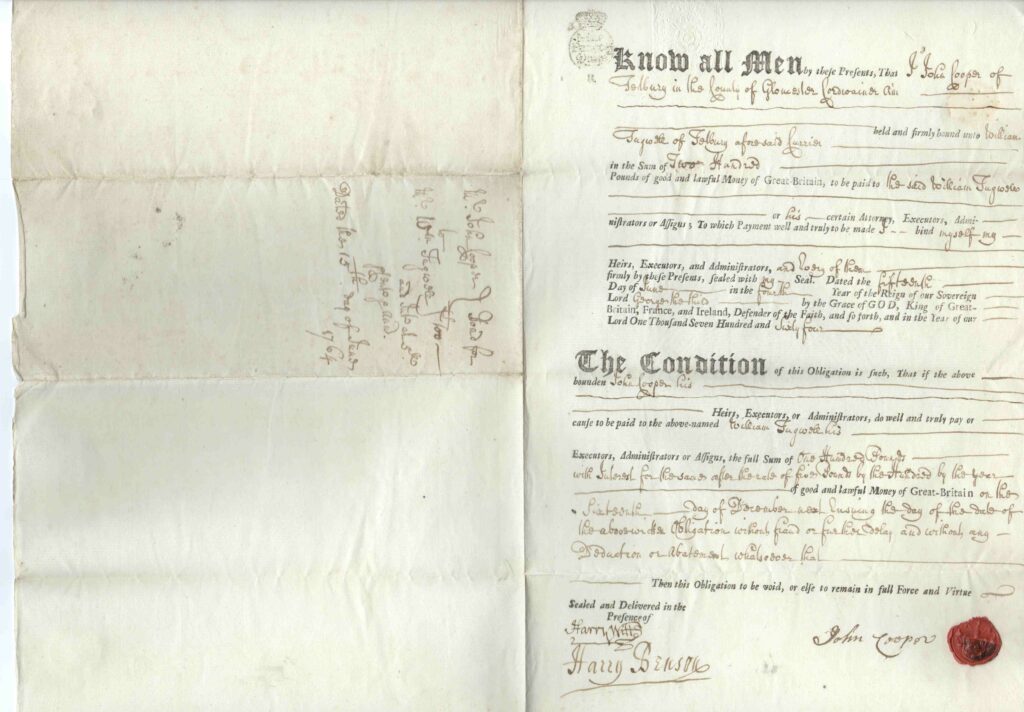 Mr. John Cooper
to
Mr. Wm. Tugwell
Bond for
Two
Dated the 15th day of June
1764
Know all Men by these Presents, That I John Cooper of
Tetbury in the County of Glocester Cordwainer am
held and firmly bound unto William
Tugwell of Tetbury aforesaid Currier
in the Sum of Two Hundred
Pounds of good and lawful Money of Great-Britain, to be paid to the said William Tugwell
or his certain Attorney, Executors, Admi-
nistrators or Assigns; To which Payment well and truly to be made I bind myself my
Heirs, Executors, and Administrators, and every of them
firmly by these Presents, sealed with my Seal. Dated the fifteenth
Day of June in the fourth Year of the Reign of our Sovereign
Lord George the third by the Grace of GOD, King of Great-
Britain, France, and Ireland, Defender of the Faith, and so forth, and in the Year of our
Lord One Thousand Seven Hundred and Sixty four
The Condition of this Obligation is such, That if the above
bounden John Cooper his
Heirs, Executors, or Administrators, do well and truly pay or
cause to be paid to the above-named William Tugwell his
Executors, Administrators or Assigns, the full Sum of One Hundred Pounds
with Interest for the same after the rate of five Pounds by the Hundred by the year
of good and lawful Money of Great-Britain on the
Sixteenth day of December next Ensuing the day of the date of
the above Obligation without fraud or further delay and without any
Deduction or Abatement whatsoever that
Then this Obligation to be void, or else to remain in full Force and Virtue
Sealed and Delivered in the
Presence of
Harry Witts
Harry Benson
John Cooper